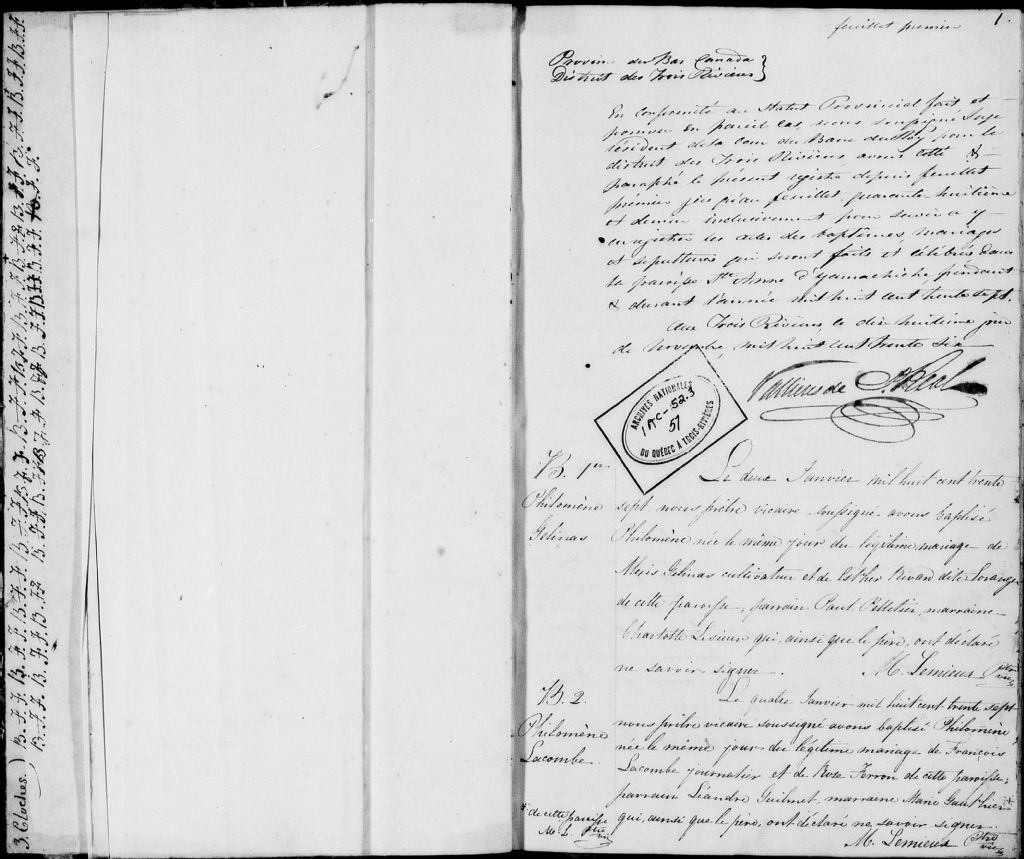 3. Cloches.) B. F. F. B. F. F. B. F. F. B. F. F.
feuillet premier
1.
Provin. du Bas Canada }
District des Trois Rivières }
En conformité au Statut Provincial fait et
pourvu en pareil cas, nous soussigné Juge
résident de la cour du Banc du Roy pour le
district des Trois Rivières, avons cotté &
paraphé le présent registre depuis feuillet
prémier jusqu'au feuillet quarante huitième
et dernier inclusivement pour servir a y
enregistrer les actes des baptêmes, mariages
et sepultures qui seront faits et célébrés dans
la paroisse Ste Anne d'Yamachiche pendant
& durant l'année mil huit cent trente sept.
Aux Trois Rivières, le dix huitième jour
de Novembre, mil huit cent trente six
Vallières de St Réal
ARCHIVES NATIONALES
52.3
51
DU QUÉBEC A TROIS-RIVIÈRES
B. 1er
Philomène
Gelinas
Le deux Janvier mil huit cent trente
sept nous prêtre vicaire soussigné avons baptisé
Philomène née le même jour du légitime mariage de
Alexis Gelinas cultivateur et de Esther Rivard dite Loranger
de cette paroisse, parrain Paul Pelletier, marraine
Charlotte Lesieur qui, ainsi que le père, ont déclaré
ne savoir signer. M. Lemieux Ptre
vic
B. 2.
Philomène
Lacombe
Le quatre Janvier mil huit cent trente sept
nous prêtre vicaire soussigné avons baptisé Philomène
née le même jour du légitime mariage de François
Lacombe journalier et de Rose Ferron de cette paroisse;
parrain Léandre Guilmet, marraine Marie Gauthier *
qui, ainsi que le père, ont déclaré ne savoir signer.
M. Lemieux Ptre
vic
* de cette paroisse
M. L. Ptre
vic